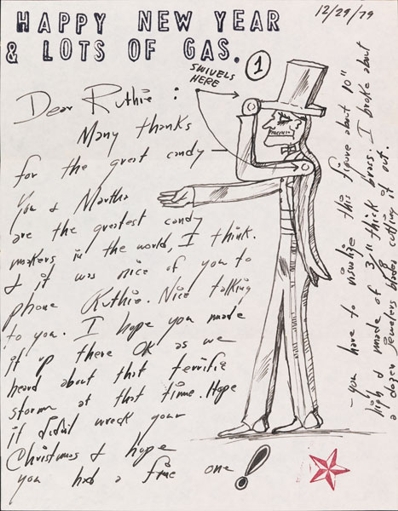 HAPPY NEW YEAR
& LOTS OF GAS.
12/29/79
1
SWIVELS
HERE
Dear Ruthie:
Many thanks
for the great candy
You & Martha
are the greatest candy
makers in the world, I think.
& it was nice of you to
phone Ruthie. Nice talking
to you. I hope you made
it up there OK as we
heard about that terrific
storm at that time. Hope
it didn't wreck your
Christmas & hope
you had a fine one!
- you have to visualize this figure about 10"
high & made of 3/8" thick brass. I broke about
a dozen jewelers blades cutting it out.